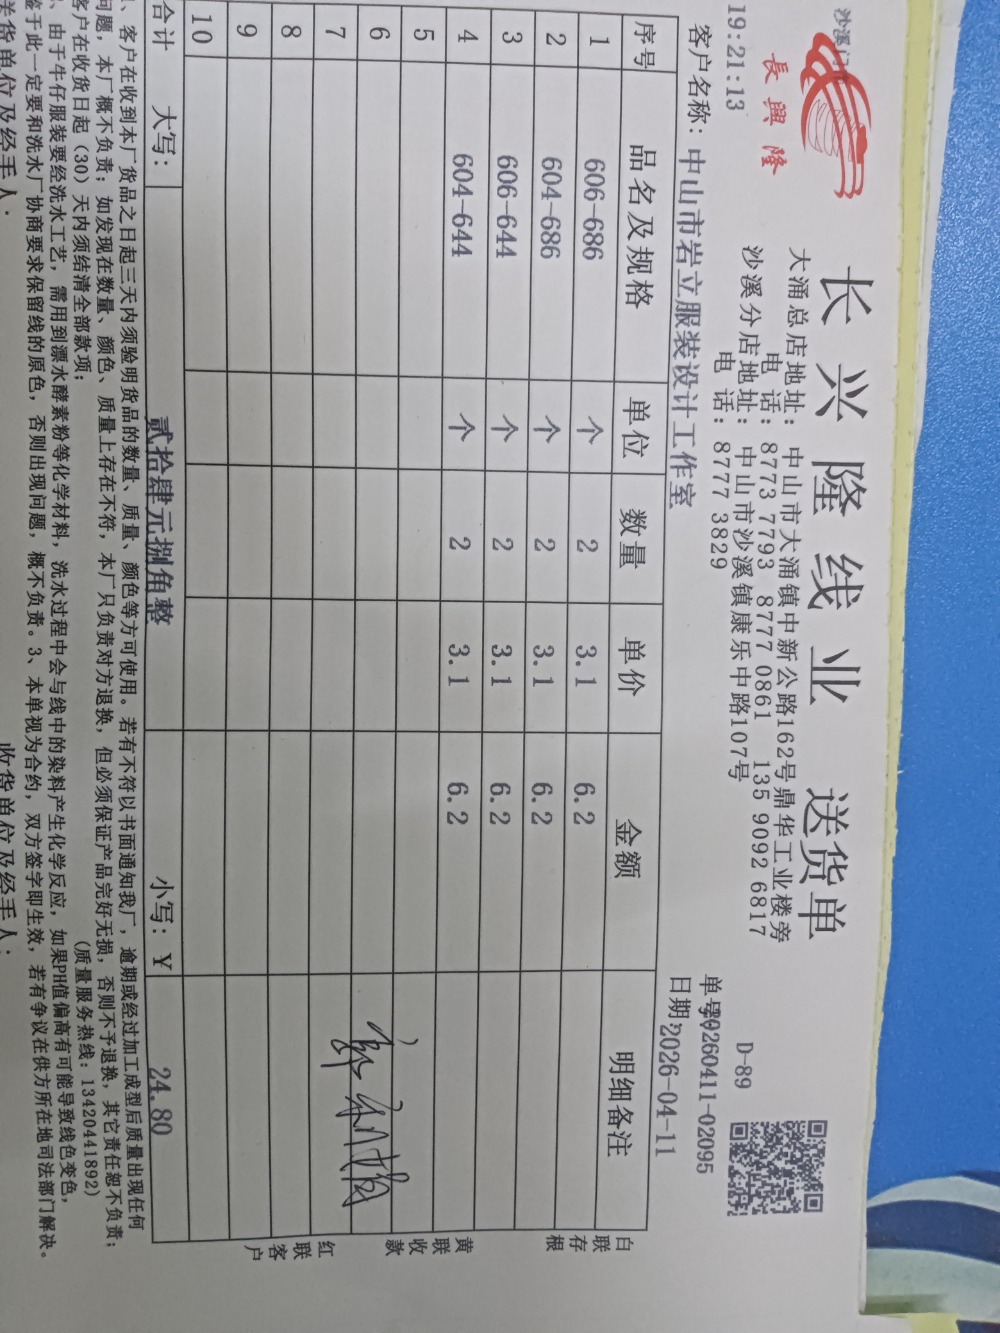 沙溪门
長興隆
长兴隆线业 送货单
大涌总店地址: 中山市大涌镇中新公路162号鼎华工业楼旁
电 话: 8773 7793 8777 0861 135 9092 6817
沙溪分店地址: 中山市沙溪镇康乐中路107号
电 话: 8777 3829
19:21:13
D-89
单号:20260411-02095
客户名称: 中山市岩立服装设计工作室
日期:2026-04-11
序号 品名及规格 单位 数量 单价 金额 明细备注
1 606-686 个 2 3.1 6.2
2 604-686 个 2 3.1 6.2
3 606-644 个 2 3.1 6.2
4 604-644 个 2 3.1 6.2
5
6
7
8
9
10
合计 大写: 贰拾肆元捌角整 小写: ¥ 24.80
白联存根
黄联收款
红联客户
、客户在收到本厂货品之日起三天内须验明货品的数量、质量、颜色等方可使用。若有不符以书面通知我厂，逾期或经过加工成型后质量出现任何
问题，本厂概不负责；如发现在数量、颜色、质量上存在不符，本厂只负责对方退换，但必须保证产品完好无损，否则不予退换，其它责任恕不负责；
客户在收货日起（30）天内须结清全部款项； (质量服务热线：13420441892)
、由于牛仔服装要经洗水工艺，需用到漂水酵素粉等化学材料，洗水过程中会与线中的染料产生化学反应，如果PH值偏高有可能导致线色变色，
鉴于此一定要和洗水厂协商要求保留线的原色，否则出现问题，概不负责。3、本单视为合约，双方签字即生效，若有争议在供方所在地司法部门解决。
送货单位及经手人: 收货单位及经手人: